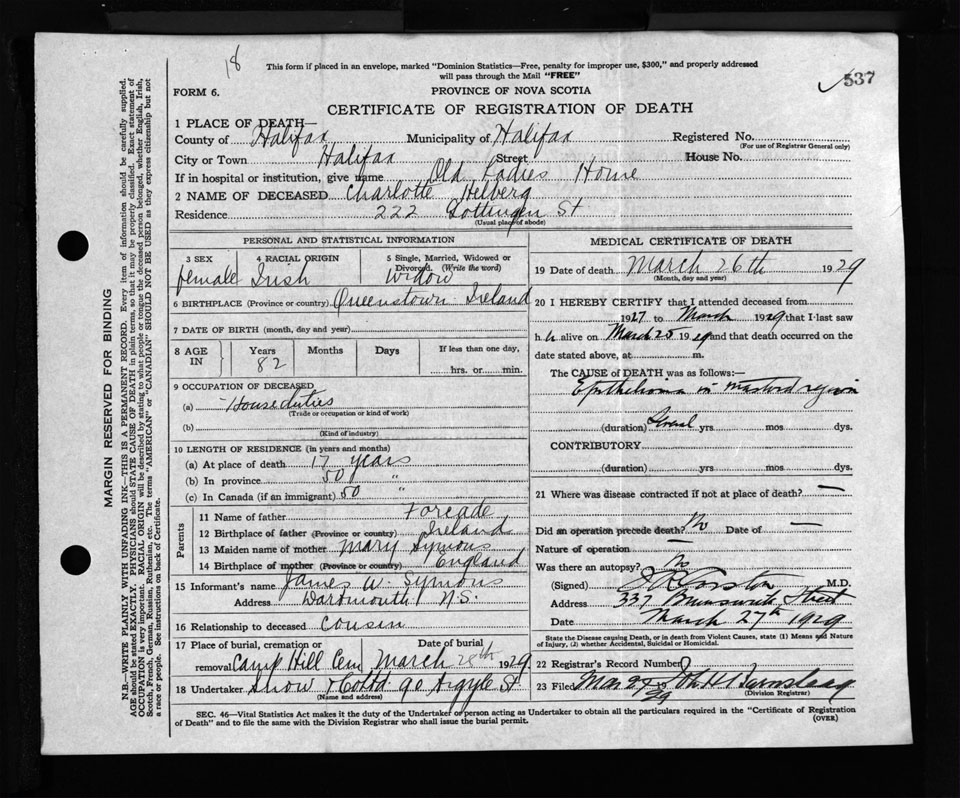 18
This form if placed in an envelope, marked "Dominion Statistics—Free, penalty for improper use, $300," and properly addressed
will pass through the Mail "FREE"
537
FORM 6.
PROVINCE OF NOVA SCOTIA
CERTIFICATE OF REGISTRATION OF DEATH
1 PLACE OF DEATH—
County of Halifax Municipality of Halifax Registered No.
(For use of Registrar General only)
City or Town Halifax Street House No.
If in hospital or institution, give name Old Ladies Home
2 NAME OF DECEASED Charlotte Helberg
Residence 222 Gottingen St
(Usual place of abode)
PERSONAL AND STATISTICAL INFORMATION
3 SEX 4 RACIAL ORIGIN 5 Single, Married, Widowed or
Divorced. (Write the word)
female Irish Widow
6 BIRTHPLACE (Province or country) Queenstown Ireland
7 DATE OF BIRTH (month, day and year)
8 AGE IN Years Months Days If less than one day,
82 hrs. or min.
9 OCCUPATION OF DECEASED
(a) House duties
(Trade or occupation or kind of work)
(b)
(Kind of industry)
10 LENGTH OF RESIDENCE (in years and months)
(a) At place of death 17 years
(b) In province 50 "
(c) In Canada (if an immigrant) 50 "
Parents
11 Name of father Forcade
12 Birthplace of father (Province or country) Ireland
13 Maiden name of mother Mary Symons
14 Birthplace of mother (Province or country) England
15 Informant's name James W. Symons
Address Dartmouth N.S.
16 Relationship to deceased cousin
17 Place of burial, cremation or Date of burial
removal Camp Hill Cem March 28th 1929
18 Undertaker Snow & Co Ltd. 90 Argyle St
(Name and address)
MEDICAL CERTIFICATE OF DEATH
19 Date of death March 26th 1929
(Month, day and year)
20 I HEREBY CERTIFY that I attended deceased from
1927 to March 1929 that I last saw
h er alive on March 25 1929 and that death occurred on the
date stated above, at m.
The CAUSE of DEATH was as follows:—
Epithelioma in mastoid region
(duration) Several yrs. mos dys.
CONTRIBUTORY
(duration) yrs. mos. dys.
21 Where was disease contracted if not at place of death? —
Did an operation precede death? No Date of —
Nature of operation —
Was there an autopsy? No
(Signed) M.D.
Address 337 Brunswick Street
Date March 27th 1929
State the Disease causing Death, or in death from Violent Causes, state (1) Means and Nature
of Injury, (2) whether Accidental, Suicidal or Homicidal.
22 Registrar's Record Number
23 Filed Mar 27 29
(Division Registrar)
SEC. 46—Vital Statistics Act makes it the duty of the Undertaker or person acting as Undertaker to obtain all the particulars required in the "Certificate of Registration
of Death" and to file the same with the Division Registrar who shall issue the burial permit.
(OVER)
MARGIN RESERVED FOR BINDING
N.B.—WRITE PLAINLY WITH UNFADING INK—THIS IS A PERMANENT RECORD. Every item of information should be carefully supplied.
AGE should be stated EXACTLY. PHYSICIANS should STATE CAUSE OF DEATH in plain terms, so that it may be properly classified. Exact statement of
OCCUPATION is very important. RACIAL ORIGIN will be described by stating to what people or tongue the deceased person belonged, whether English, Irish,
Scotch, French, German, Russian, Ruthenian, etc. The terms "AMERICAN" or "CANADIAN" SHOULD NOT BE USED as they express citizenship but not
a race or people. See instructions on back of Certificate.